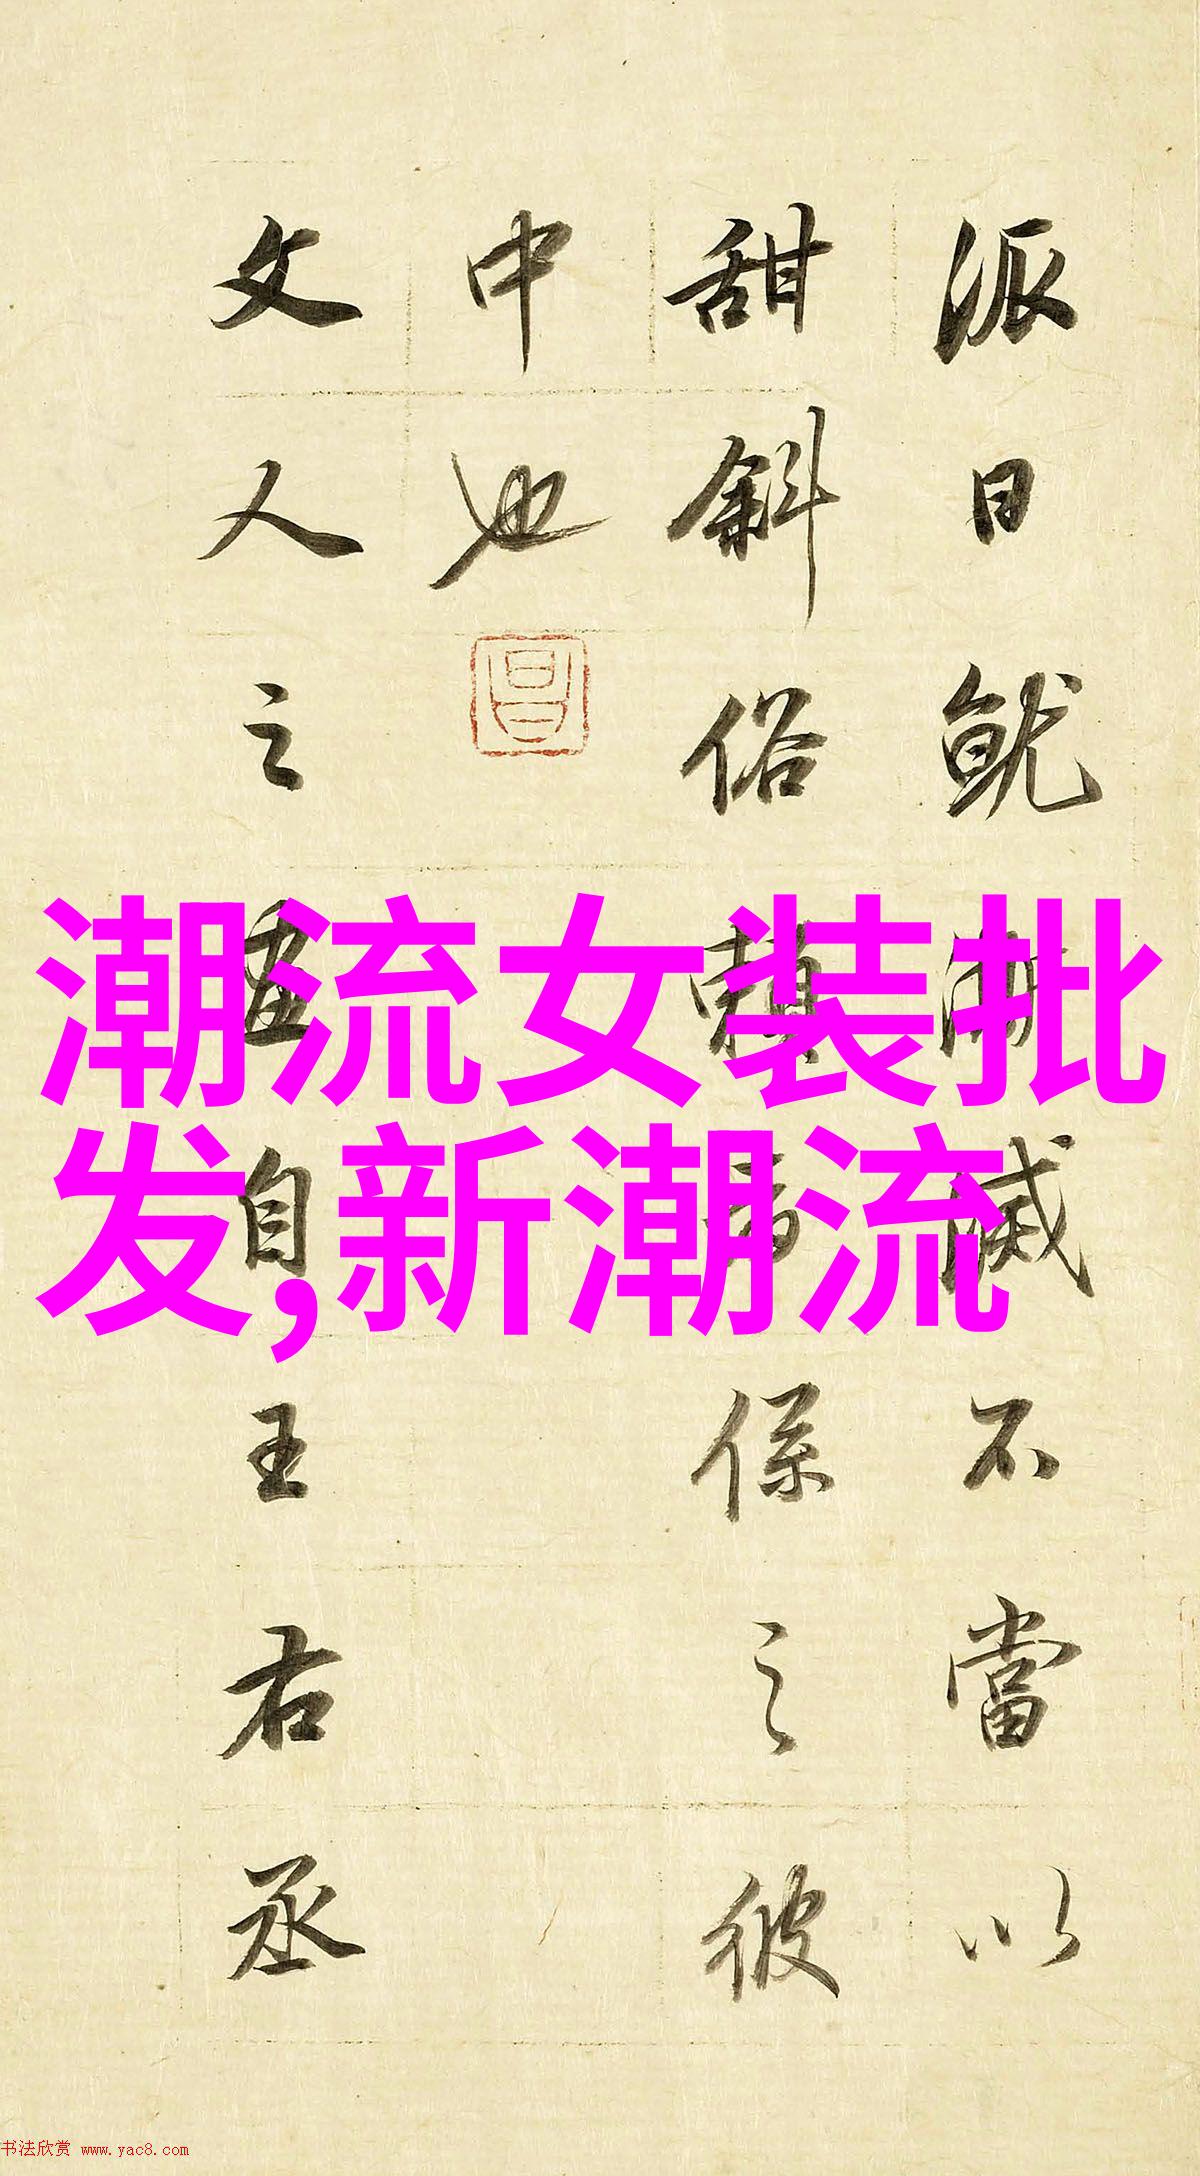 派日就滅不當以
甜斜俗賴者係之彼
中也
昌
文人之畫自王右丞
潮流女装批
发,新潮流
书法欣赏 www.yac8.com